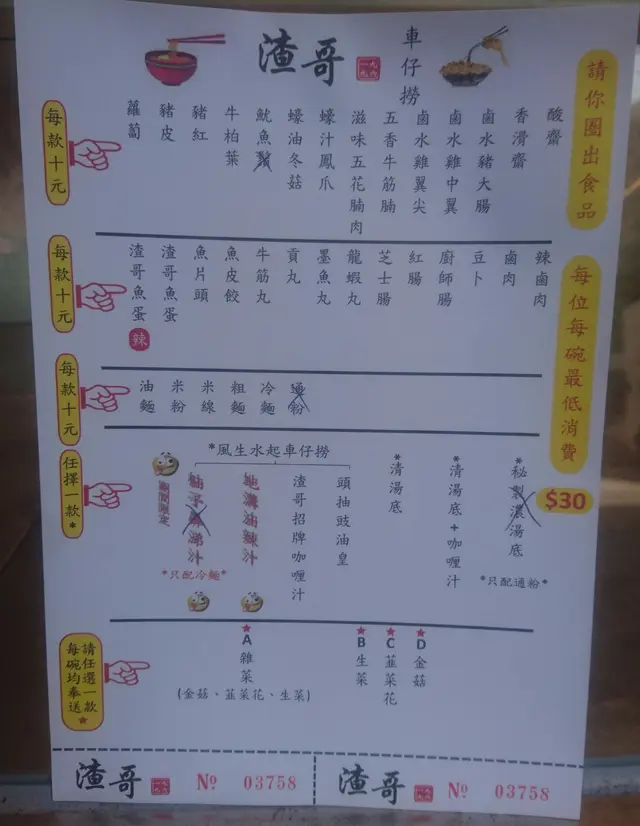 渣哥
一九九六
車仔撈
請你圈出食品
每位每碗最低消費
$30
每款十元
酸齋
香滑齋
鹵水豬大腸
鹵水雞中翼
鹵水雞翼尖
五香牛筋腩
滋味五花腩肉
蠔汁鳳爪
蠔油冬菇
魷魚鬚
牛柏葉
豬紅
豬皮
蘿蔔
每款十元
辣鹵肉
鹵肉
豆卜
廚師腸
紅腸
芝士腸
龍蝦丸
墨魚丸
貢丸
牛筋丸
魚皮餃
魚片頭
渣哥魚蛋
渣哥魚蛋
辣
每款十元
油麵
米粉
米線
粗麵
冷麵
通粉
任擇一款*
*風生水起車仔撈
*秘製濃湯底
*只配通粉*
*清湯底+咖喱汁
*清湯底
頭抽豉油皇
渣哥招牌咖喱汁
*只配冷麵*
請任選一款
每碗均奉送★
★A雜菜
(金菇、韮菜花、生菜)
★B生菜
★C韮菜花
★D金菇
渣哥 一九九六 Nº 03758
渣哥 一九九六 Nº 03758